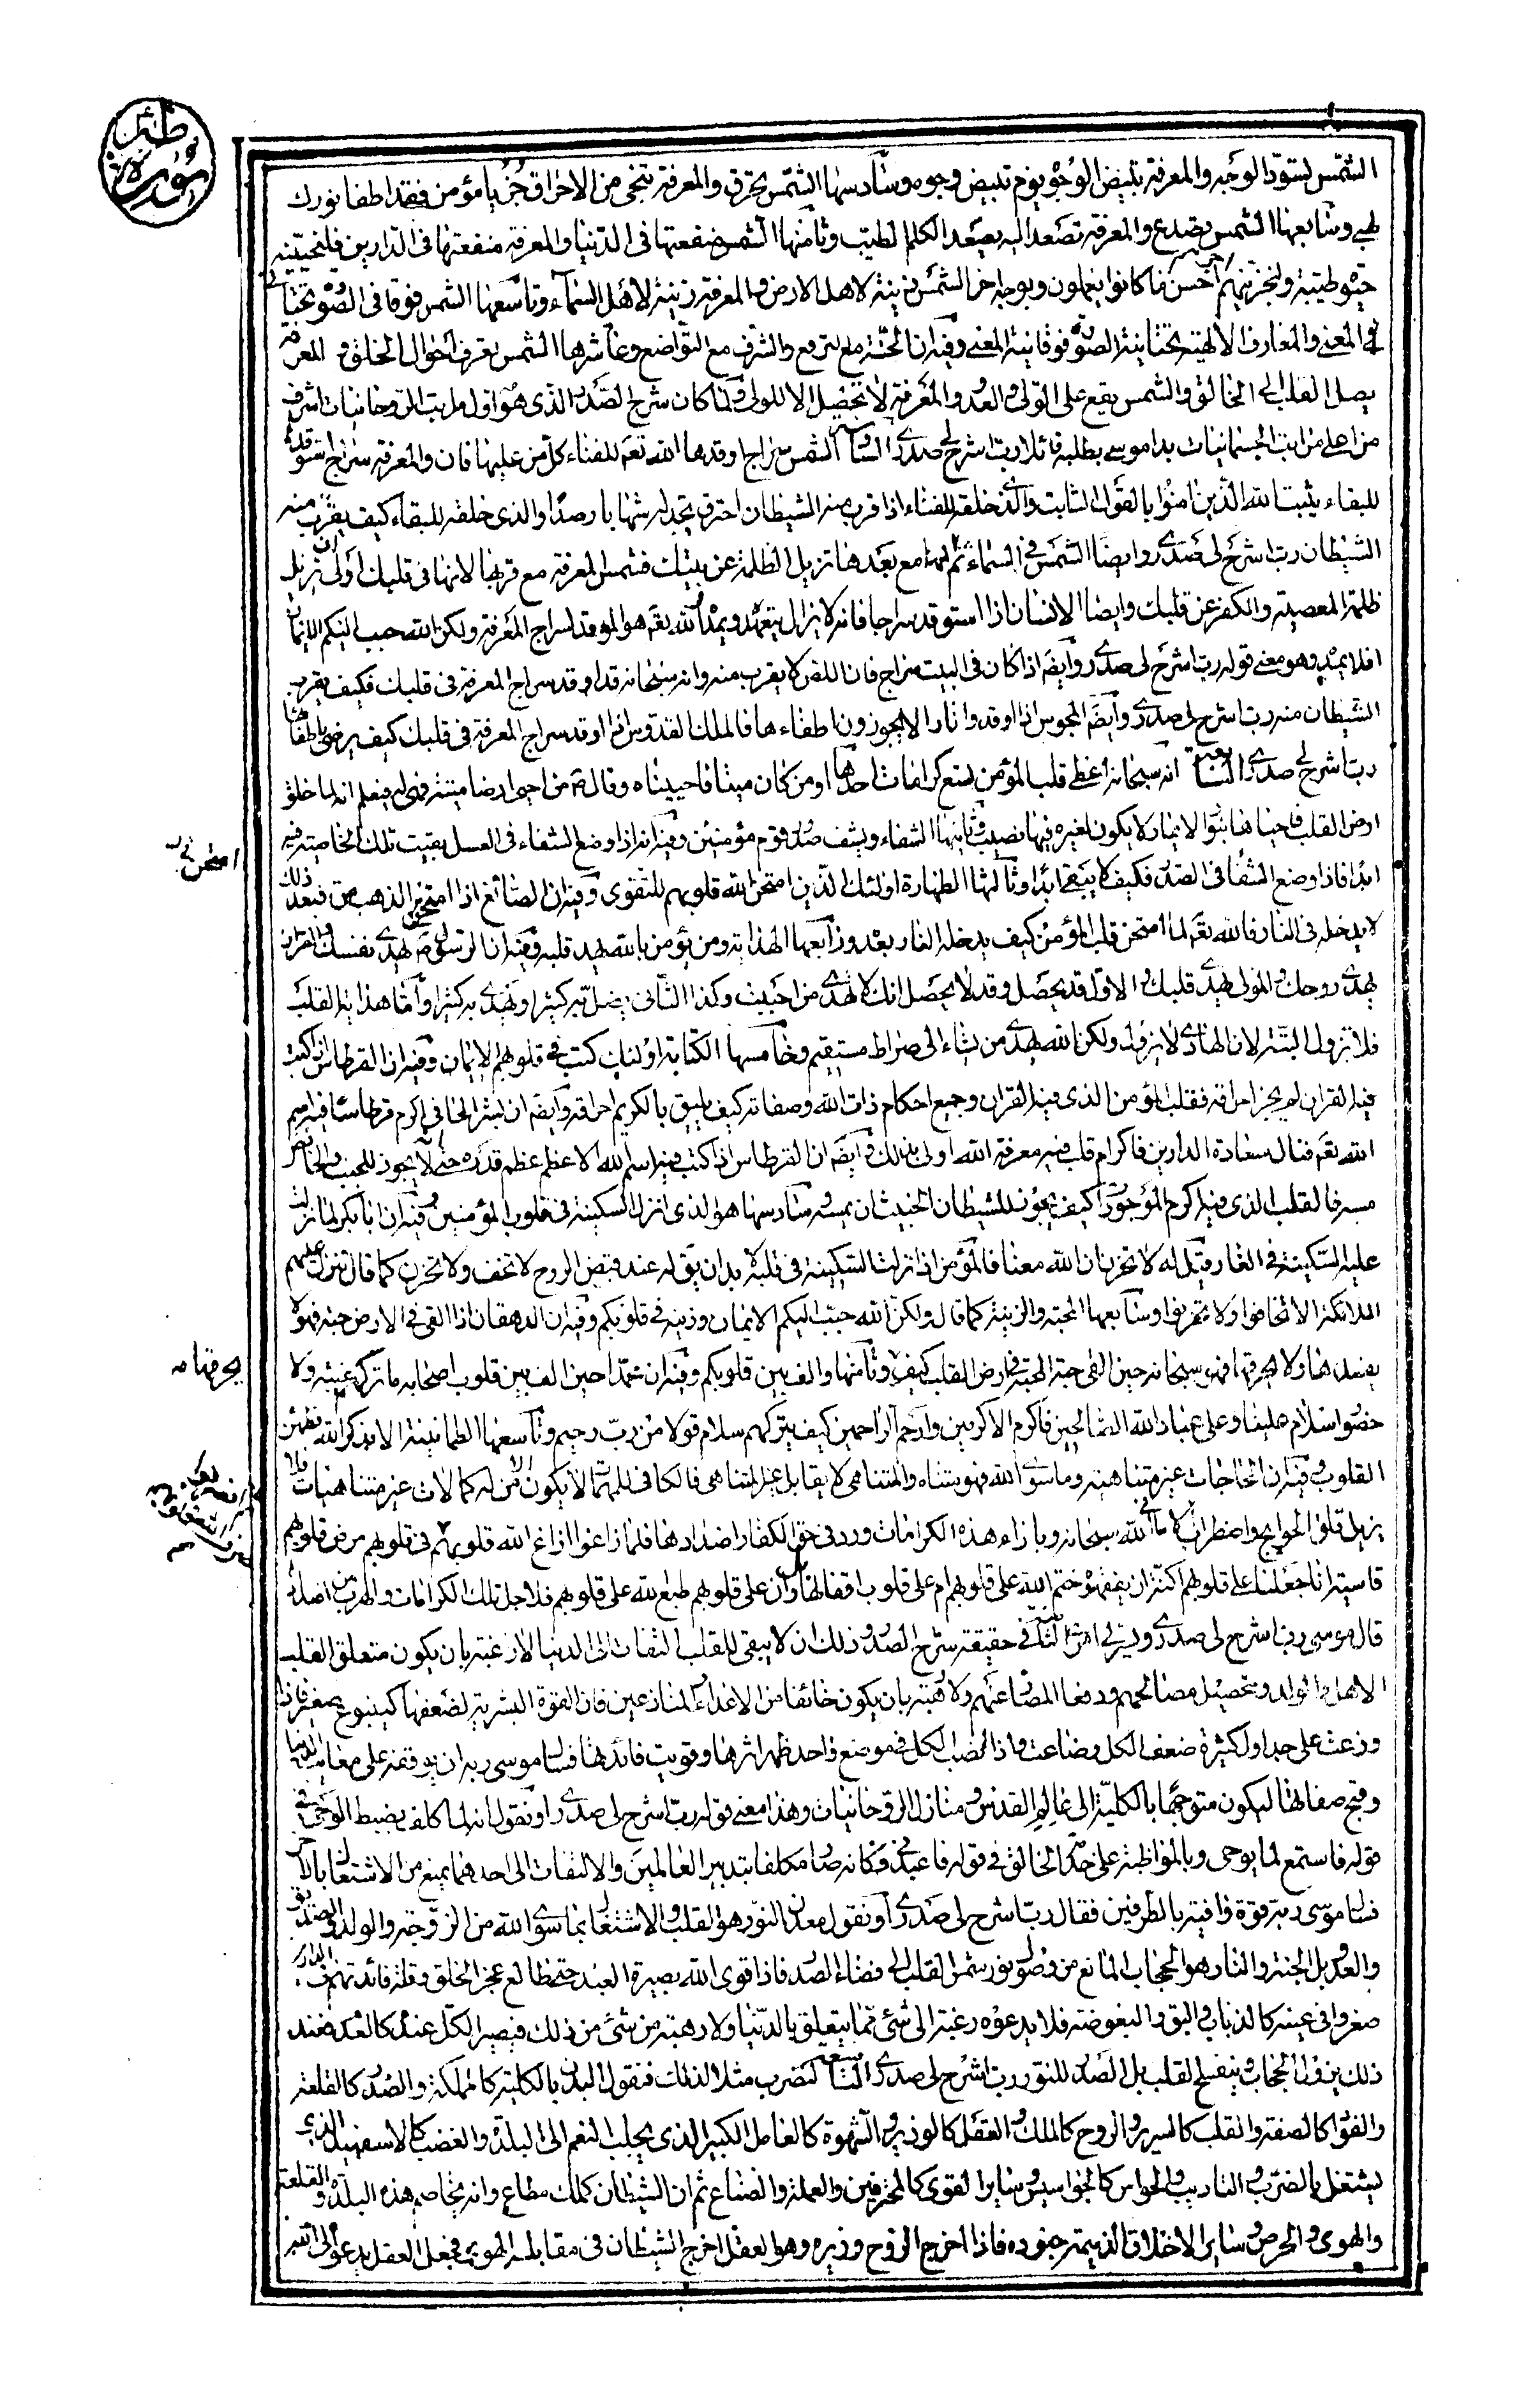 سورة طه
الشمس تسود الوجه والمعرفة تبيض الوجوه يوم تبيض وجوه وسادسها الشمس تحرق والمعرفة تنجي من الاحراق جز يا مؤمن فقد اطفا نورك
لهبي وسابعها الشمس تصدع والمعرفة تصعد اليه يصعد الكلم الطيب وثامنها الشمس منفعتها في الدنيا والمعرفة منفعتها في الدارين فلنحيينه
حيوة طيبة ولنجزينهم اجرهم باحسن ما كانوا يعملون وبوجه اخر الشمس زينة لاهل الارض والمعرفة زينة لاهل السماء وتاسعها الشمس فوقاني الصورة تحتاني
المعنى والمعارف الالهية تحتانية الصورة فوقانية المعنى وفيه ان الخسة مع الترفع والشرف مع التواضع وعاشرها الشمس تعرف احوال الخلق والمعرفة
يصل القلب الى الخالق والشمس يقع على الولي والعدو والمعرفة لا تحصل الا للولي ولما كان شرح الصدر الذي هو اول مراتب الروحانيات اشرف
من اعلى مراتب الجسمانيات بدا موسى بطلبه قائلا رب اشرح لي صدري السادس الشمس سراج اوقدها الله تعم للفناء كل من عليها فان والمعرفة سراج استوقده
للبقاء يثبت الله الذين امنوا بالقول الثابت والذي خلقه للفناء اذا قرب منه الشيطان احترق يجد له شهابا رصدا والذي خلقه للبقاء كيف يقرب منه
الشيطان رب اشرح لي صدري وايضا الشمس في السماء ثم انها مع بعدها تزيل الظلمة عن بيتك فشمس المعرفة مع قربها لانها في قلبك اولى ان تزيل
ظلمة المعصية والكفر عن قلبك وايضا الانسان اذا استوقد سراجا فانه لا يزال يتعهده ويمده والله تعم هو الموقد لسراج المعرفة ولكن الله حبب اليكم الايمان
افلا يمده وهو معنى قوله رب اشرح لي صدري وايضم اذا كان في البيت سراج فان اللص لا يقرب منه وانه سبحانه قد اوقد سراج المعرفة في قلبك فكيف يقرب
الشيطان منه رب اشرح لي صدري وايضم المجوس اذا اوقدوا نارا لا يجوزون اطفاءها فالملك القدوس اذا اوقد سراج المعرفة في قلبك كيف يرضى باطفائها
رب اشرح لي صدري السابعة انه سبحانه اعطى قلب المؤمن تسع كرامات احدها اومن كان ميتا فاحييناه وقال ص من احيى ارضا ميتة فهي له فيعلم انه لما خلق
ارض القلب فاحياها بنور الايمان لا يكون لغيره فيها نصيب وثانيها الشفاء ويشف صدور قوم مؤمنين وفيه انه اذا وضع الشفاء في العسل بقيت تلك الخاصية فيه
ابدا فاذا وضع الشفاء في الصدر فكيف لا يبقى ابدا وثالثها الطهارة اولئك الذين امتحن الله قلوبهم للتقوى وفيه ان الصائغ اذا امتحن الذهب مرة فبعد ذلك
لا يدخله في النار فالله تعم لما امتحن قلب المؤمن كيف يدخله النار بعده ورابعها الهداية ومن يؤمن بالله يهد قلبه وفيه ان الرسول ص يهدي نفسك والقران
يهدي روحك والمولى يهدي قلبك والاول قد يحصل وقد لا يحصل انك لا تهدي من احببت وكذا الثاني يضل به كثيرا ويهدي به كثيرا واما هداية القلب
فلا تزول البتة لان الهادي لا يزول ولكن الله يهدي من يشاء الى صراط مستقيم وخامسها الكتابة اولئك كتب في قلوبهم الايمان وفيه ان القرطاس اذا كتب
فيه القران لم يجز احراقه فقلب المؤمن الذي فيه القران وجميع احكام ذات الله وصفاته كيف يليق بالكريم احراقه وايضم ان بشر الحافي اكرم قرطاسا فيه اسم
الله تعم فنال سعادة الدارين فاكرام قلب فيه معرفة الله اولى بذلك وايضم ان القرطاس اذا كتب فيه اسم الله الاعظم عظم قدره حتى لا يجوز للجنب والحائض
مسه فالقلب الذي فيه اكرم الموجودات كيف يجوز للشيطان الخبيث ان يمسه وسادسها هو الذي انزل السكينة في قلوب المؤمنين وفيه ان ابا بكر لما نزلت
عليه السكينة في الغار قيل له لا تحزن ان الله معنا فالمؤمن اذا نزلت السكينة في قلبه لا بد ان يق له عند قبض الروح لا تخف ولا تحزن كما قال تتنزل عليهم
الملائكة الا تخافوا ولا تحزنوا وسابعها المحبة والزينة كما قال ولكن الله حبب اليكم الايمان وزينه في قلوبكم وفيه ان الدهقان اذا القى في الارض حبة فهو لا
يفسدها ولا يحرقها فهو سبحانه حين القى حبة المحبة في ارض القلب كيف يحرقها وثامنها والف بين قلوبكم وفيه ان محمدا حين الف بين قلوب اصحابه ما تركهم غيبة ولا
حضورا سلام علينا وعلى عباد الله الصالحين فاكرم الاكرمين وارحم الراحمين كيف يتركهم سلام قولا من رب رحيم وتاسعها الطمانينة الا بذكر الله تطمئن
القلوب وفيه ان الحاجات غير متناهية وما سوى الله فهو متناه والمتناهي لا يقابل غير المتناهي فالكافي للمهمات لا يكون الا من له كمالات غير متناهيات فلا
يزيل قلق الحوائج واضطراب الاماني الا الله سبحانه وبازاء هذه الكرامات ورد في حق الكفار اضدادها فلما زاغوا ازاغ الله قلوبهم في قلوبهم مرض قلوبهم
قاسية انا جعلنا على قلوبهم اكنة ان يفقهوه ختم الله على قلوبهم ام على قلوب اقفالها ران على قلوبهم طبع الله على قلوبهم فلاجل تلك الكرامات والهرب من اضدادها
قال موسى رب اشرح لي صدري ويسر لي امري الثامنة في حقيقة شرح الصدر وذلك ان لا يبقى للقلب التفات الى الدنيا لا رغبة بان يكون متعلق القلب
بالاهل والولد وتحصيل مصالحهم ودفع المضار عنهم ولا رهبة بان يكون خائفا من الاعداء والمنازعين فان القوة البشرية لضعفها كينبوع صغير فاذا
وزعت على جداول كثيرة ضعف الكل وضاعت واذا انصب الكل في موضع واحد ظهر اثرها وقويت فائدتها فسال موسى ربه ان يوقفه على معايب الدنيا
وقبح صفاتها ليكون متوجها بالكلية الى عالم القدس ومنازل الروحانيات وهذا معنى قوله رب اشرح لي صدري او نقول انه لما كلف بضبط الوحي في
قوله فاستمع لما يوحى وبالمواظبة على خدمة الخالق في قوله فاعبدني فكانه صار مكلفا بتدبير العالمين والالتفات الى احدهما يمنع من الاشتغال بالاخر
فسال موسى ربه قوة وافية بالطرفين فقال رب اشرح لي صدري او نقول معدن النور هو القلب والاشتغال بما سوى الله من الزوجة والولد والصديق
والعدو بل الجنة والنار هو الحجاب المانع من وصول نور شمس القلب الى فضاء الصدر فاذا قوى الله بصيرة العبد حتى طالع عجز الخلق وقلة فائدتهم في الدارين
صغروا في عينه كالذباب والبق والبعوضة فلا يدعوه رغبة الى شئ مما يتعلق بالدنيا ولا رهبة من شئ من ذلك فيصير الكل عنده كالعدم فعند
ذلك يزول الحجاب وينفسح القلب بل الصدر للنور رب اشرح لي صدري التاسعة لنضرب مثلا لذلك فنقول البدن بالكلية كالمملكة والصدر كالقلعة
والفؤاد كالصفة والقلب كالسرير والروح كالملك والعقل كالوزير والشهوة كالعامل الكبير الذي يجلب النعم الى البلدة والغضب كالاسفهسلار الذي
يشتغل بالضرب والتاديب والحواس كالجواسيس وسائر القوى كالمحترفين والعملة والصناع ثم ان الشيطان كملك مطاع وانه يخاصم هذه البلدة والقلعة
والهوى والحرص وسائر الاخلاق الذميمة جنوده فاذا اخرج الروح وزيره وهو العقل اخرج الشيطان في مقابلته الهوى فجعل العقل يدعو الى الله
امتحن
يحرقها